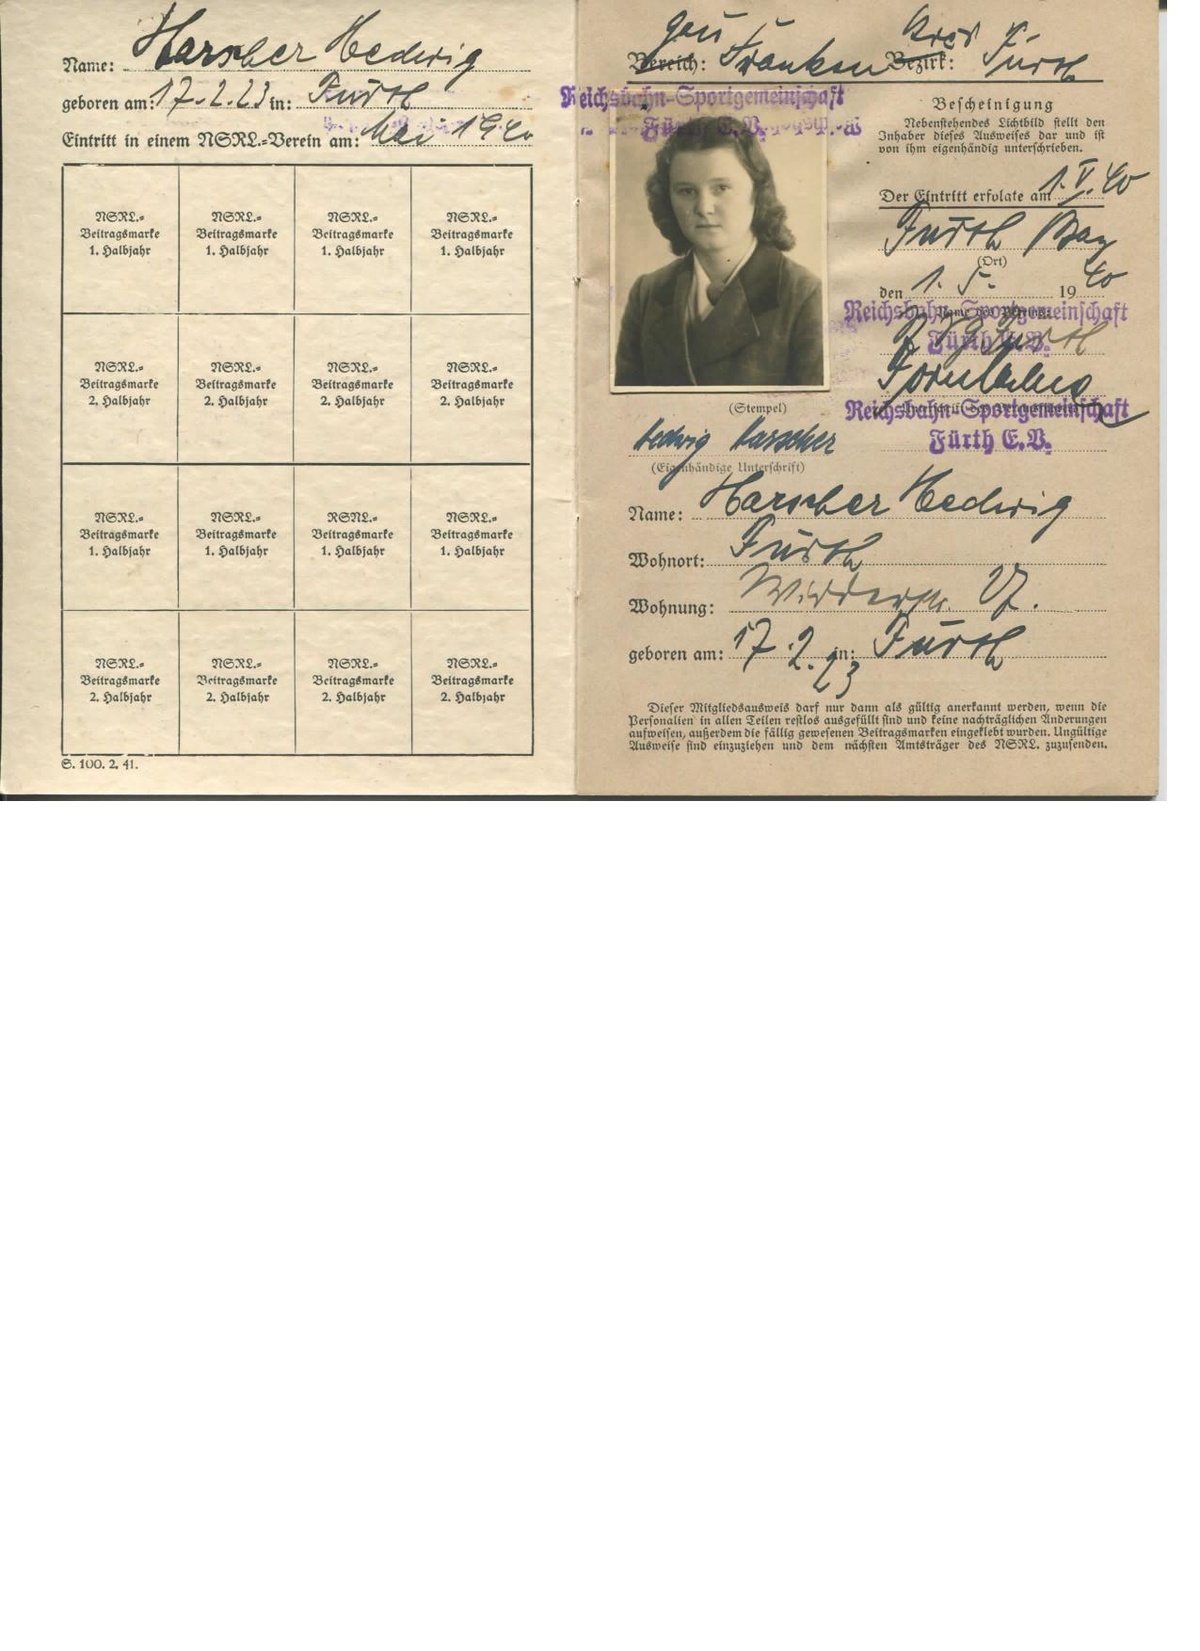 Name: Harscher Hedwig
geboren am: 17.2.23 in: Fürth
Eintritt in einem NSRL.=Verein am: Mai 1940
NSRL.= NSRL.= NSRL.= NSRL.=
Beitragsmarke Beitragsmarke Beitragsmarke Beitragsmarke
1. Halbjahr 1. Halbjahr 1. Halbjahr 1. Halbjahr
NSRL.= NSRL.= NSRL.= NSRL.=
Beitragsmarke Beitragsmarke Beitragsmarke Beitragsmarke
2. Halbjahr 2. Halbjahr 2. Halbjahr 2. Halbjahr
NSRL.= NSRL.= RSNL.= NSRL.=
Beitragsmarke Beitragsmarke Beitragsmarke Beitragsmarke
1. Halbjahr 1. Halbjahr 1. Halbjahr 1. Halbjahr
NSRL.= NSRL.= NSRL.= NSRL.=
Beitragsmarke Beitragsmarke Beitragsmarke Beitragsmarke
2. Halbjahr 2. Halbjahr 2. Halbjahr 2. Halbjahr
S. 100. 2. 41.
Gau Kreis
Bereich: Franken Bezirk: Fürth
Reichsbahn-Sportgemeinschaft
Fürth E.V.
Bescheinigung
Nebenstehendes Lichtbild stellt den
Inhaber dieses Ausweises dar und ist
von ihm eigenhändig unterschrieben.
Der Eintritt erfolgte am 1.V.40
Fürth Bay
(Ort)
den 1. 5. 1940
Reichsbahn-Sportgemeinschaft
Fürth E.V.
Reichsbahn-Sportgemeinschaft
Fürth E.V.
(Stempel)
Hedwig Harscher
(Eigenhändige Unterschrift)
Name: Harscher Hedwig
Wohnort: Fürth
Wohnung: 27.
geboren am: 17.2.23 in: Fürth
Dieser Mitgliedsausweis darf nur dann als gültig anerkannt werden, wenn die
Personalien in allen Teilen restlos ausgefüllt sind und keine nachträglichen Änderungen
aufweisen, außerdem die fällig gewesenen Beitragsmarken eingeklebt wurden. Ungültige
Ausweise sind einzuziehen und dem nächsten Amtsträger des NSRL. zuzusenden.